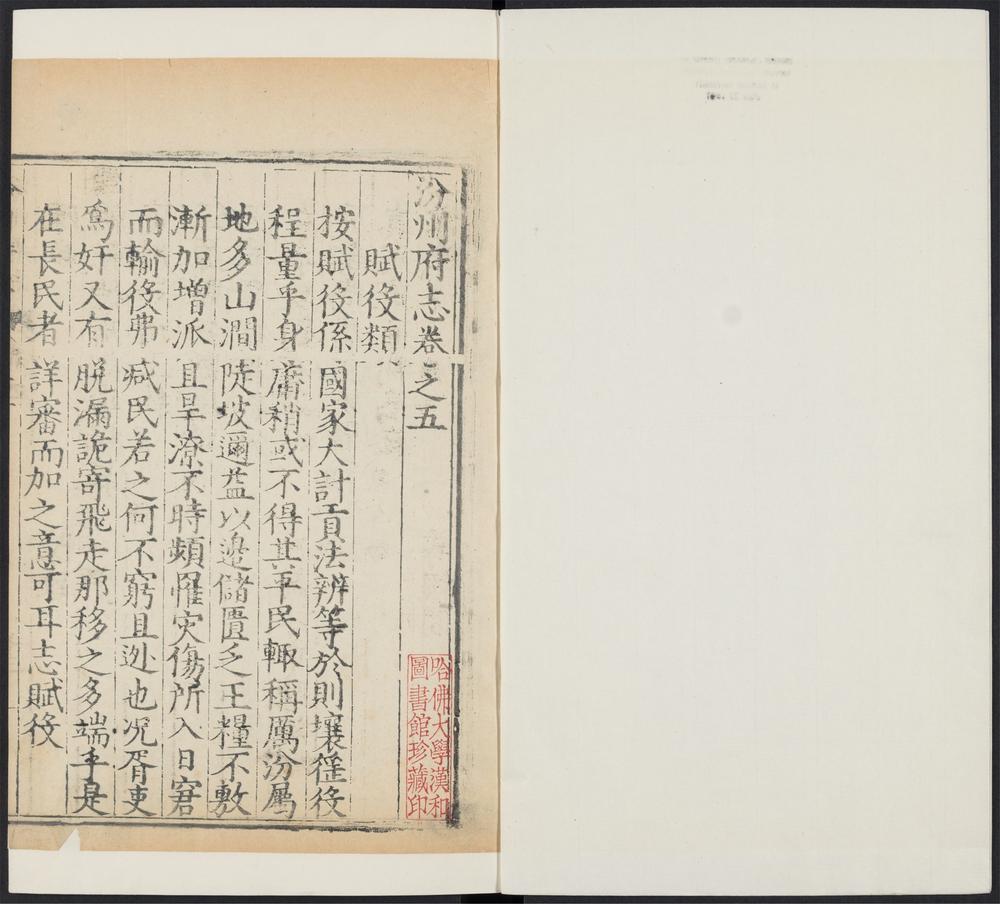 汾州府志卷之五
賦役類
按賦役係國家大計貢法辨等於則壤徭役
程量乎身庸稍或不得其平民輙稱厲汾屬
地多山澗陡坡邇葢以邊儲匱乏王糧不敷
漸加增派且旱潦不時頻罹灾傷所入日窘
而輸役弗减民若之何不窮且迯也况胥吏
爲奸又有脱漏詭寄飛走那移之多端乎是
在長民者詳審而加之意可耳志賦役
哈佛大學漢和
圖書館珍藏印